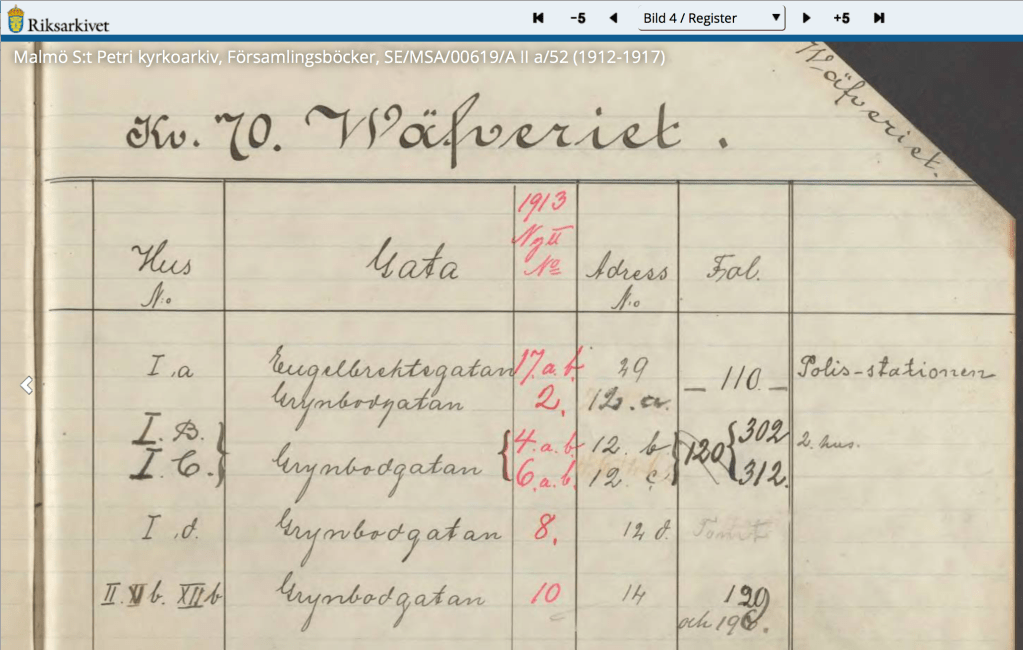 Riksarkivet
-5
Bild 4 / Register
+5
Malmö S:t Petri kyrkoarkiv, Församlingsböcker, SE/MSA/00619/A II a/52 (1912-1917)
Wäfveriet.
Kv. 70. Wäfveriet.
Hus N:o Gata 1913 Nytt No Adress N:o Fol.
I.a Engelbrektsgatan 17.a.b. 39 — 110. — Polis-stationen
Grynbodgatan 2. 12. a.
I. B. 4.a.b. 12. b 120 302 2. hus.
I. C. Grynbodgatan 6.a.b. 12. c 312.
I.d. Grynbodgatan 8. 12 d. Tomt
II. b. XII b Grynbodgatan 10 14 120
och 196.